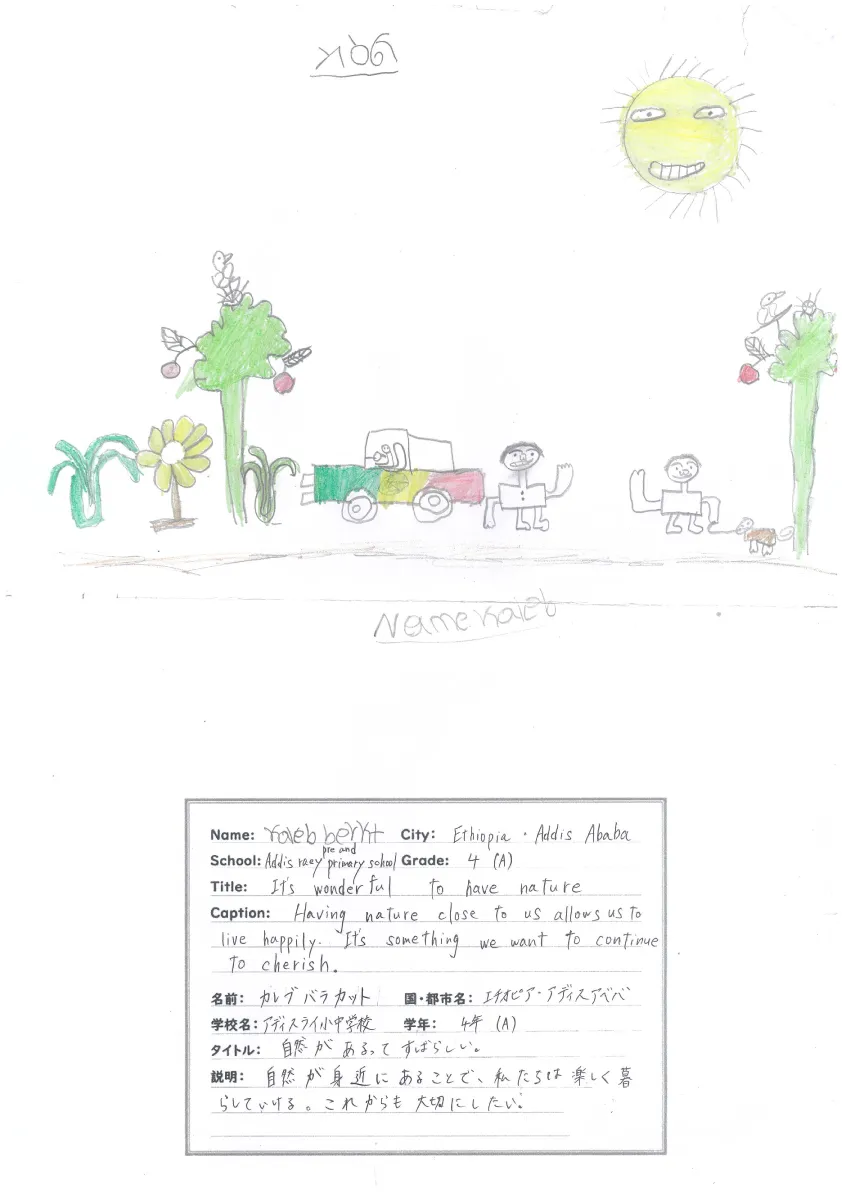 Name Kaleb
Name: Kaleb berkt City: Ethiopia・Addis Ababa
pre and
School: Addis raey primary school Grade: 4 (A)
Title: It's wonderful to have nature
Caption: Having nature close to us allows us to
live happily. It's something we want to continue
to cherish.
名前: カレブ バラカット 国・都市名: エチオピア・アディスアベバ
学校名: アディスライ小中学校 学年: 4年 (A)
タイトル: 自然が あるって すばらしい。
説明: 自然が身近にあることで、私たちは楽しく暮
らしていける。これからも大切にしたい。